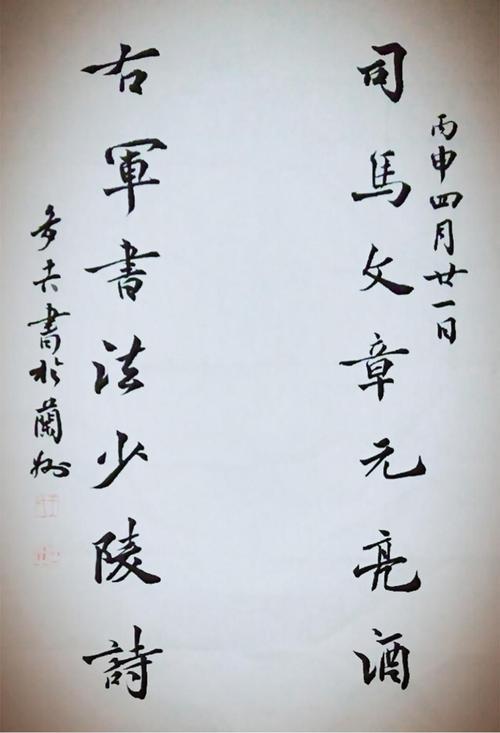 丙申四月廿一日
司馬文章元亮酒
右軍書法少陵詩
多吉書於蘭州